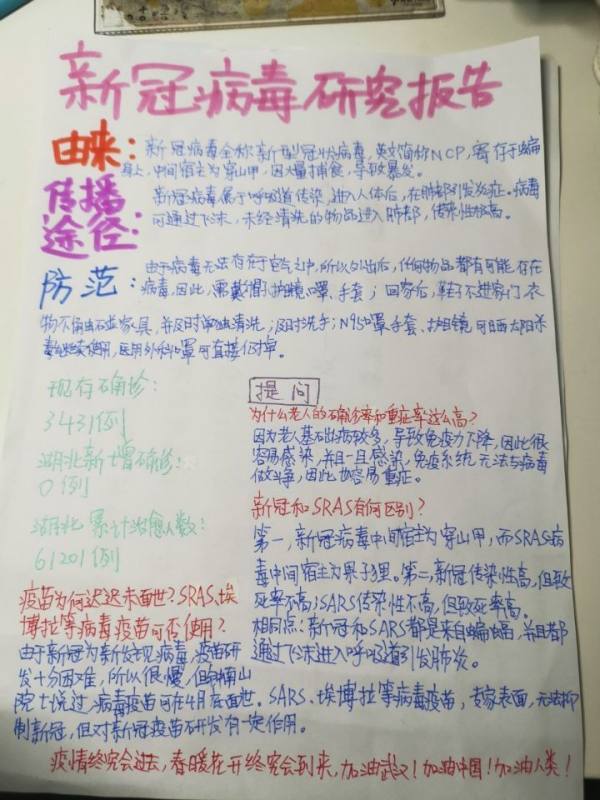 新冠病毒研究报告
由来：新冠病毒全称新型冠状病毒，英文简称NCP，寄存于蝙蝠
身上，中间宿主为穿山甲，因大量捕食，导致暴发。
传播途径：新冠病毒属于呼吸道传染，进入人体后，在肺部引发炎症。病毒
可通过飞沫，未经清洗的物品进入肺部，传染性极高。
防范：由于病毒无法存在于空气之中，所以外出后，任何物品都有可能存在
病毒，因此，需戴帽、护目镜、口罩、手套；回家后，鞋子不进家门，衣
物不触碰家具，并及时单独清洗，及时洗手；N95口罩手套、护目镜可晒太阳杀
毒继续使用，医用外科口罩可直接扔掉。
现存确诊：
3431例
湖北新增确诊：
0例
湖北累计治愈人数：
61201例
提问
为什么老人的确诊率和重症率这么高？
因为老人基础疾病较多，导致免疫力下降，因此很
容易感染，并且一旦感染，免疫系统无法与病毒
做斗争，因此也容易重症。
新冠和SRAS有何区别？
第一，新冠病毒中间宿主为穿山甲，而SRAS病
毒中间宿主为果子狸。第二，新冠传染性高，但致
死率不高；SARS传染性不高，但致死率高。
相同点：新冠和SARS都是来自蝙蝠，并且都
通过飞沫进入呼吸道引发肺炎。
疫苗为何迟迟未面世？SRAS、埃
博拉等病毒疫苗可否使用？
由于新冠为新发现病毒，疫苗研
发十分困难，所以很慢，但钟南山
院士说过，病毒疫苗可在4月底面世。SARS、埃博拉等病毒疫苗，专家表面，无法抑
制新冠，但对新冠疫苗研发有一定作用。
疫情终究会过去，春暖花开终究会到来，加油武汉！加油中国！加油人类！